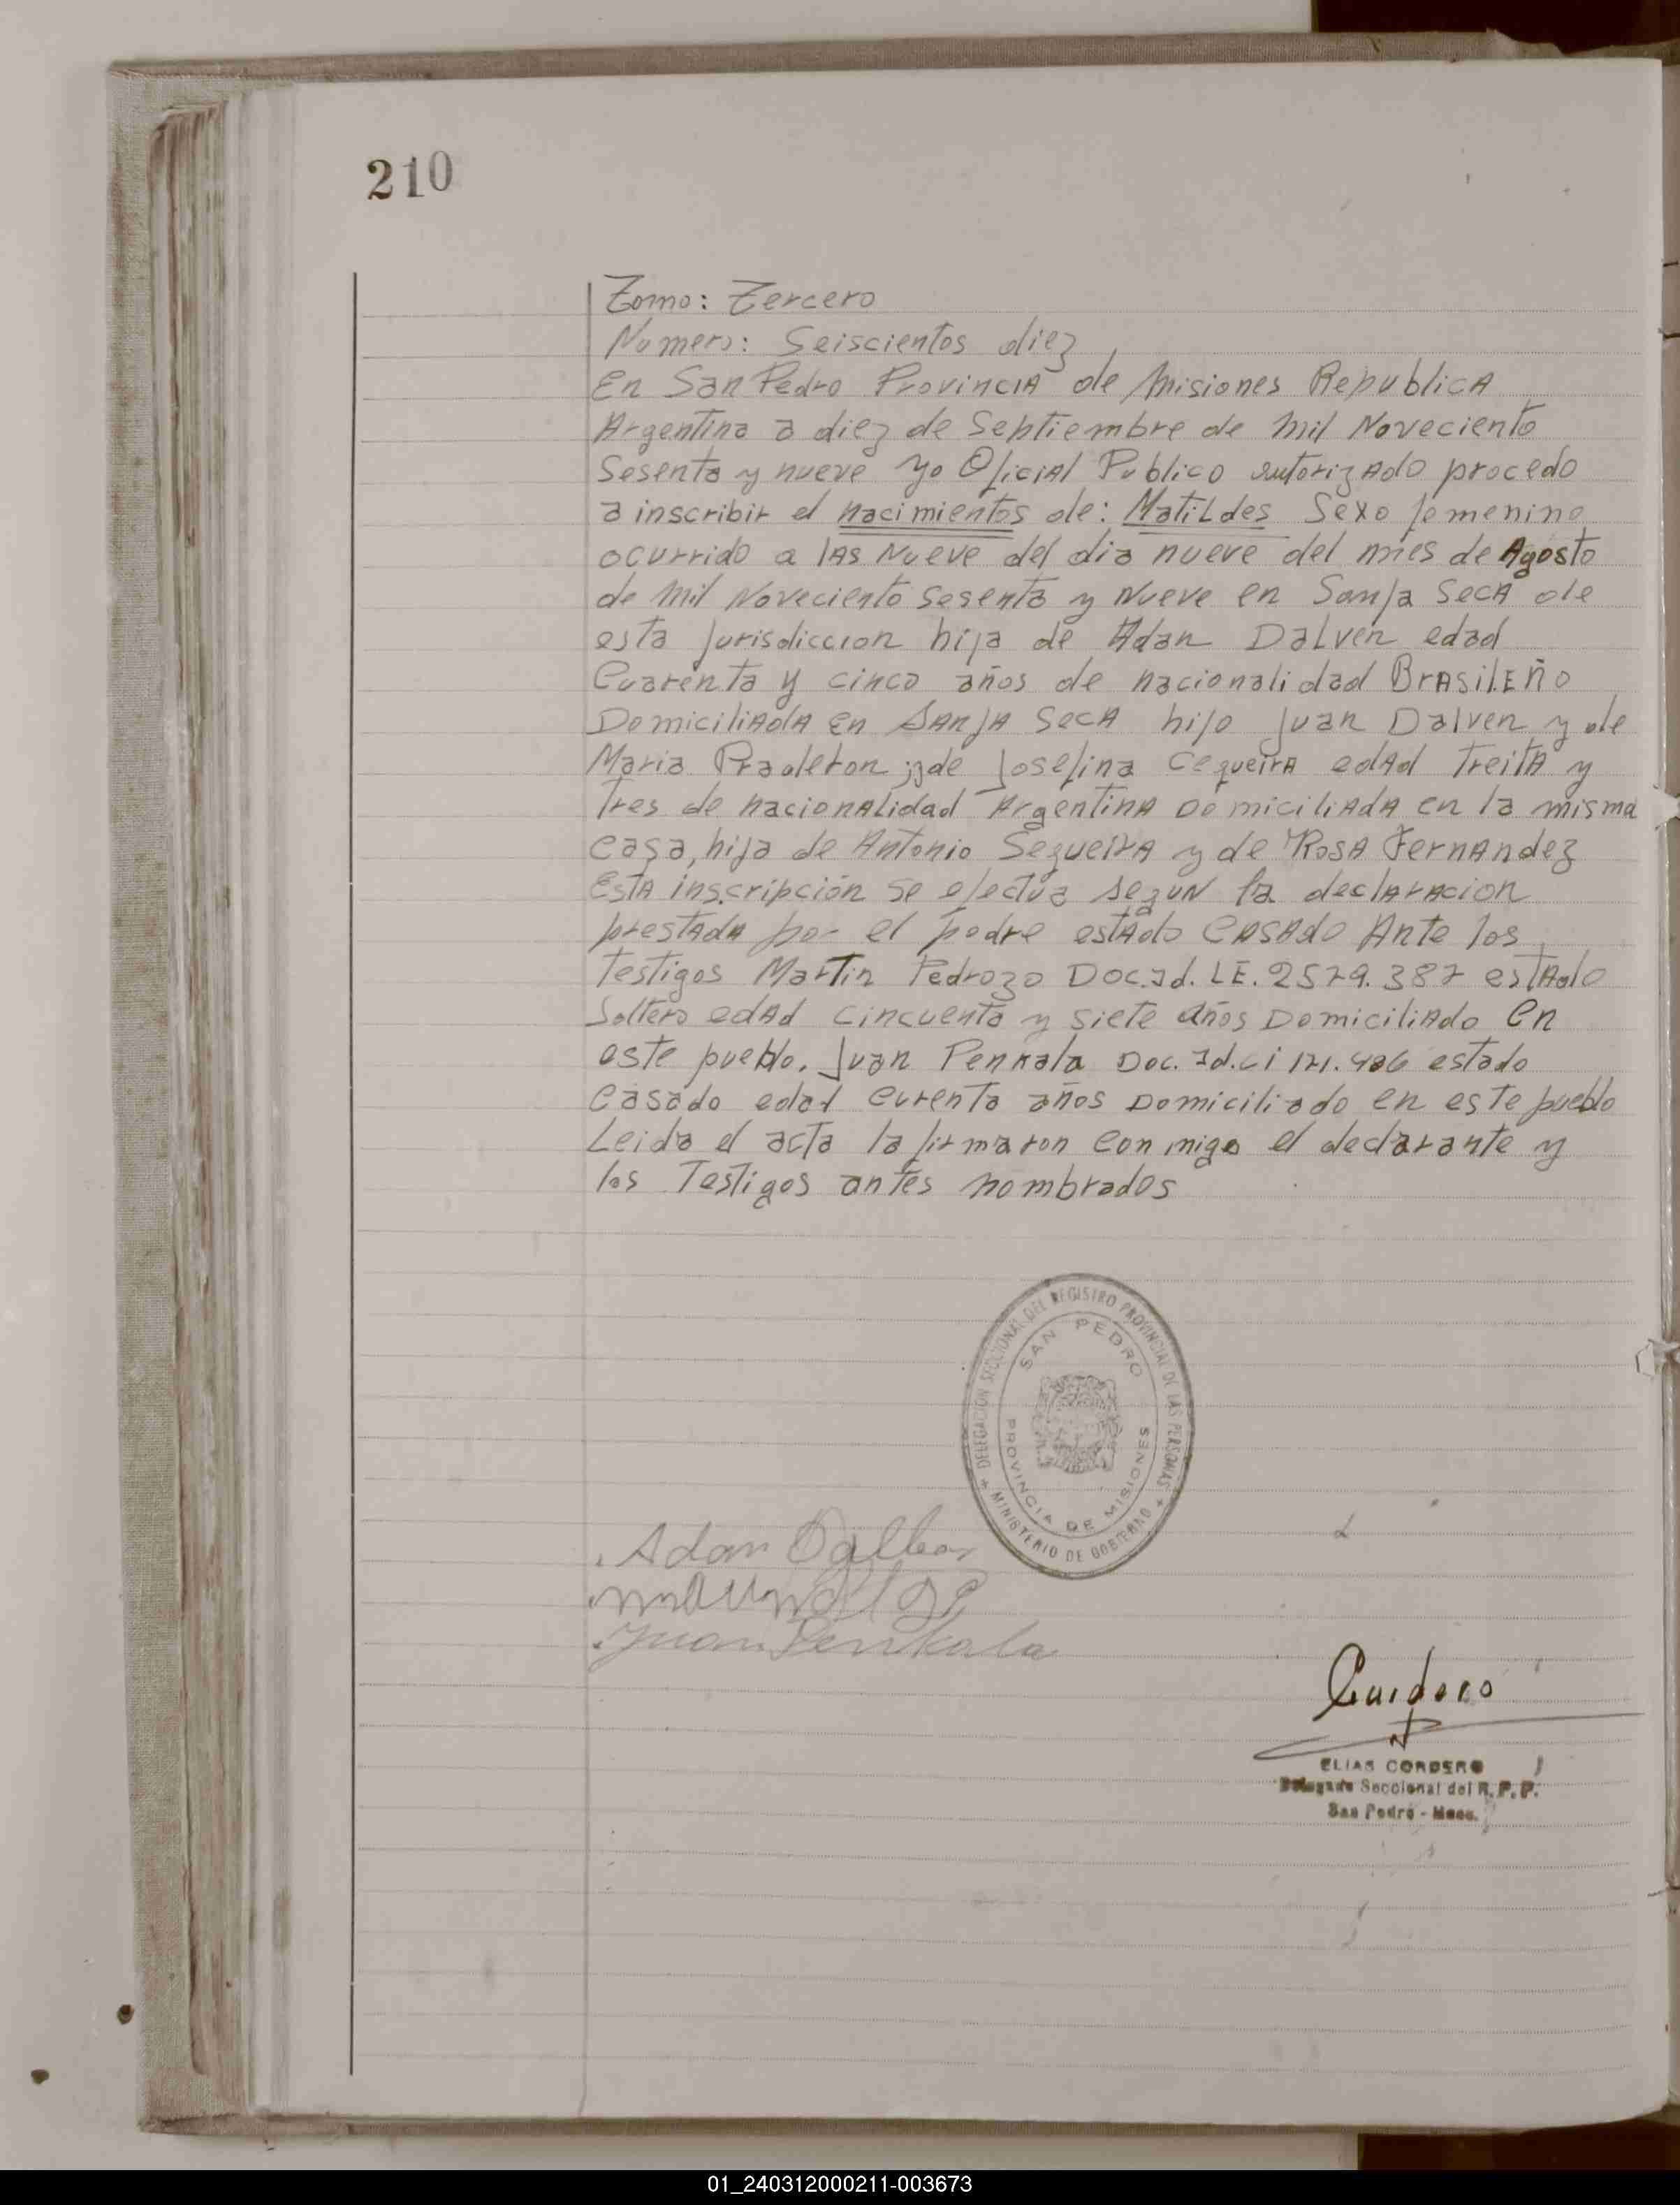 210
Tomo: Tercero
Numero: Seiscientos diez
En San Pedro Provincia de Misiones Republica
Argentina a diez de Septiembre de Mil Noveciento
Sesenta y nueve Yo Oficial Publico autorizado procedo
a inscribir el nacimientos de: Matildes Sexo femenino
ocurrido a las Nueve del dia nueve del mes de Agosto
de Mil Noveciento Sesenta y Nueve en Sanja Seca de
esta Jurisdiccion hija de Adan Dalven edad
Cuarenta y cinco años de nacionalidad Brasileño
Domiciliada en Sanja Seca hijo Juan Dalven y de
Maria y de Josefina Cequeira edad Treita y
Tres de nacionalidad Argentina Domiciliada en la misma
casa, hija de Antonio Sequeira y de Rosa Fernandez
Esta inscripción se efectúa según la declaracion
prestada por el padre estado Casado Ante los
Testigos Martin Pedrozo Doc. Id. LE. 2579.387 estado
Soltero edad cincuenta y siete años Domiciliado en
este pueblo. Juan Penkala Doc. Id. Ci 121.406 estado
Casado edad curenta años Domiciliado en este pueblo
Leida el acta la firmaron conmigo el declarante y
los Testigos antes nombrados
DELEGACION SECCIONAL DEL REGISTRO PROVINCIAL DE LAS PERSONAS
SAN PEDRO
PROVINCIA DE MISIONES
MINISTERIO DE GOBIERNO
Adan Dalben
Juan Penkala
Cordero
ELIAS CORDERO
Delegado Seccional del R. P. P.
San Pedro - Mnes.
01_240312000211-003673